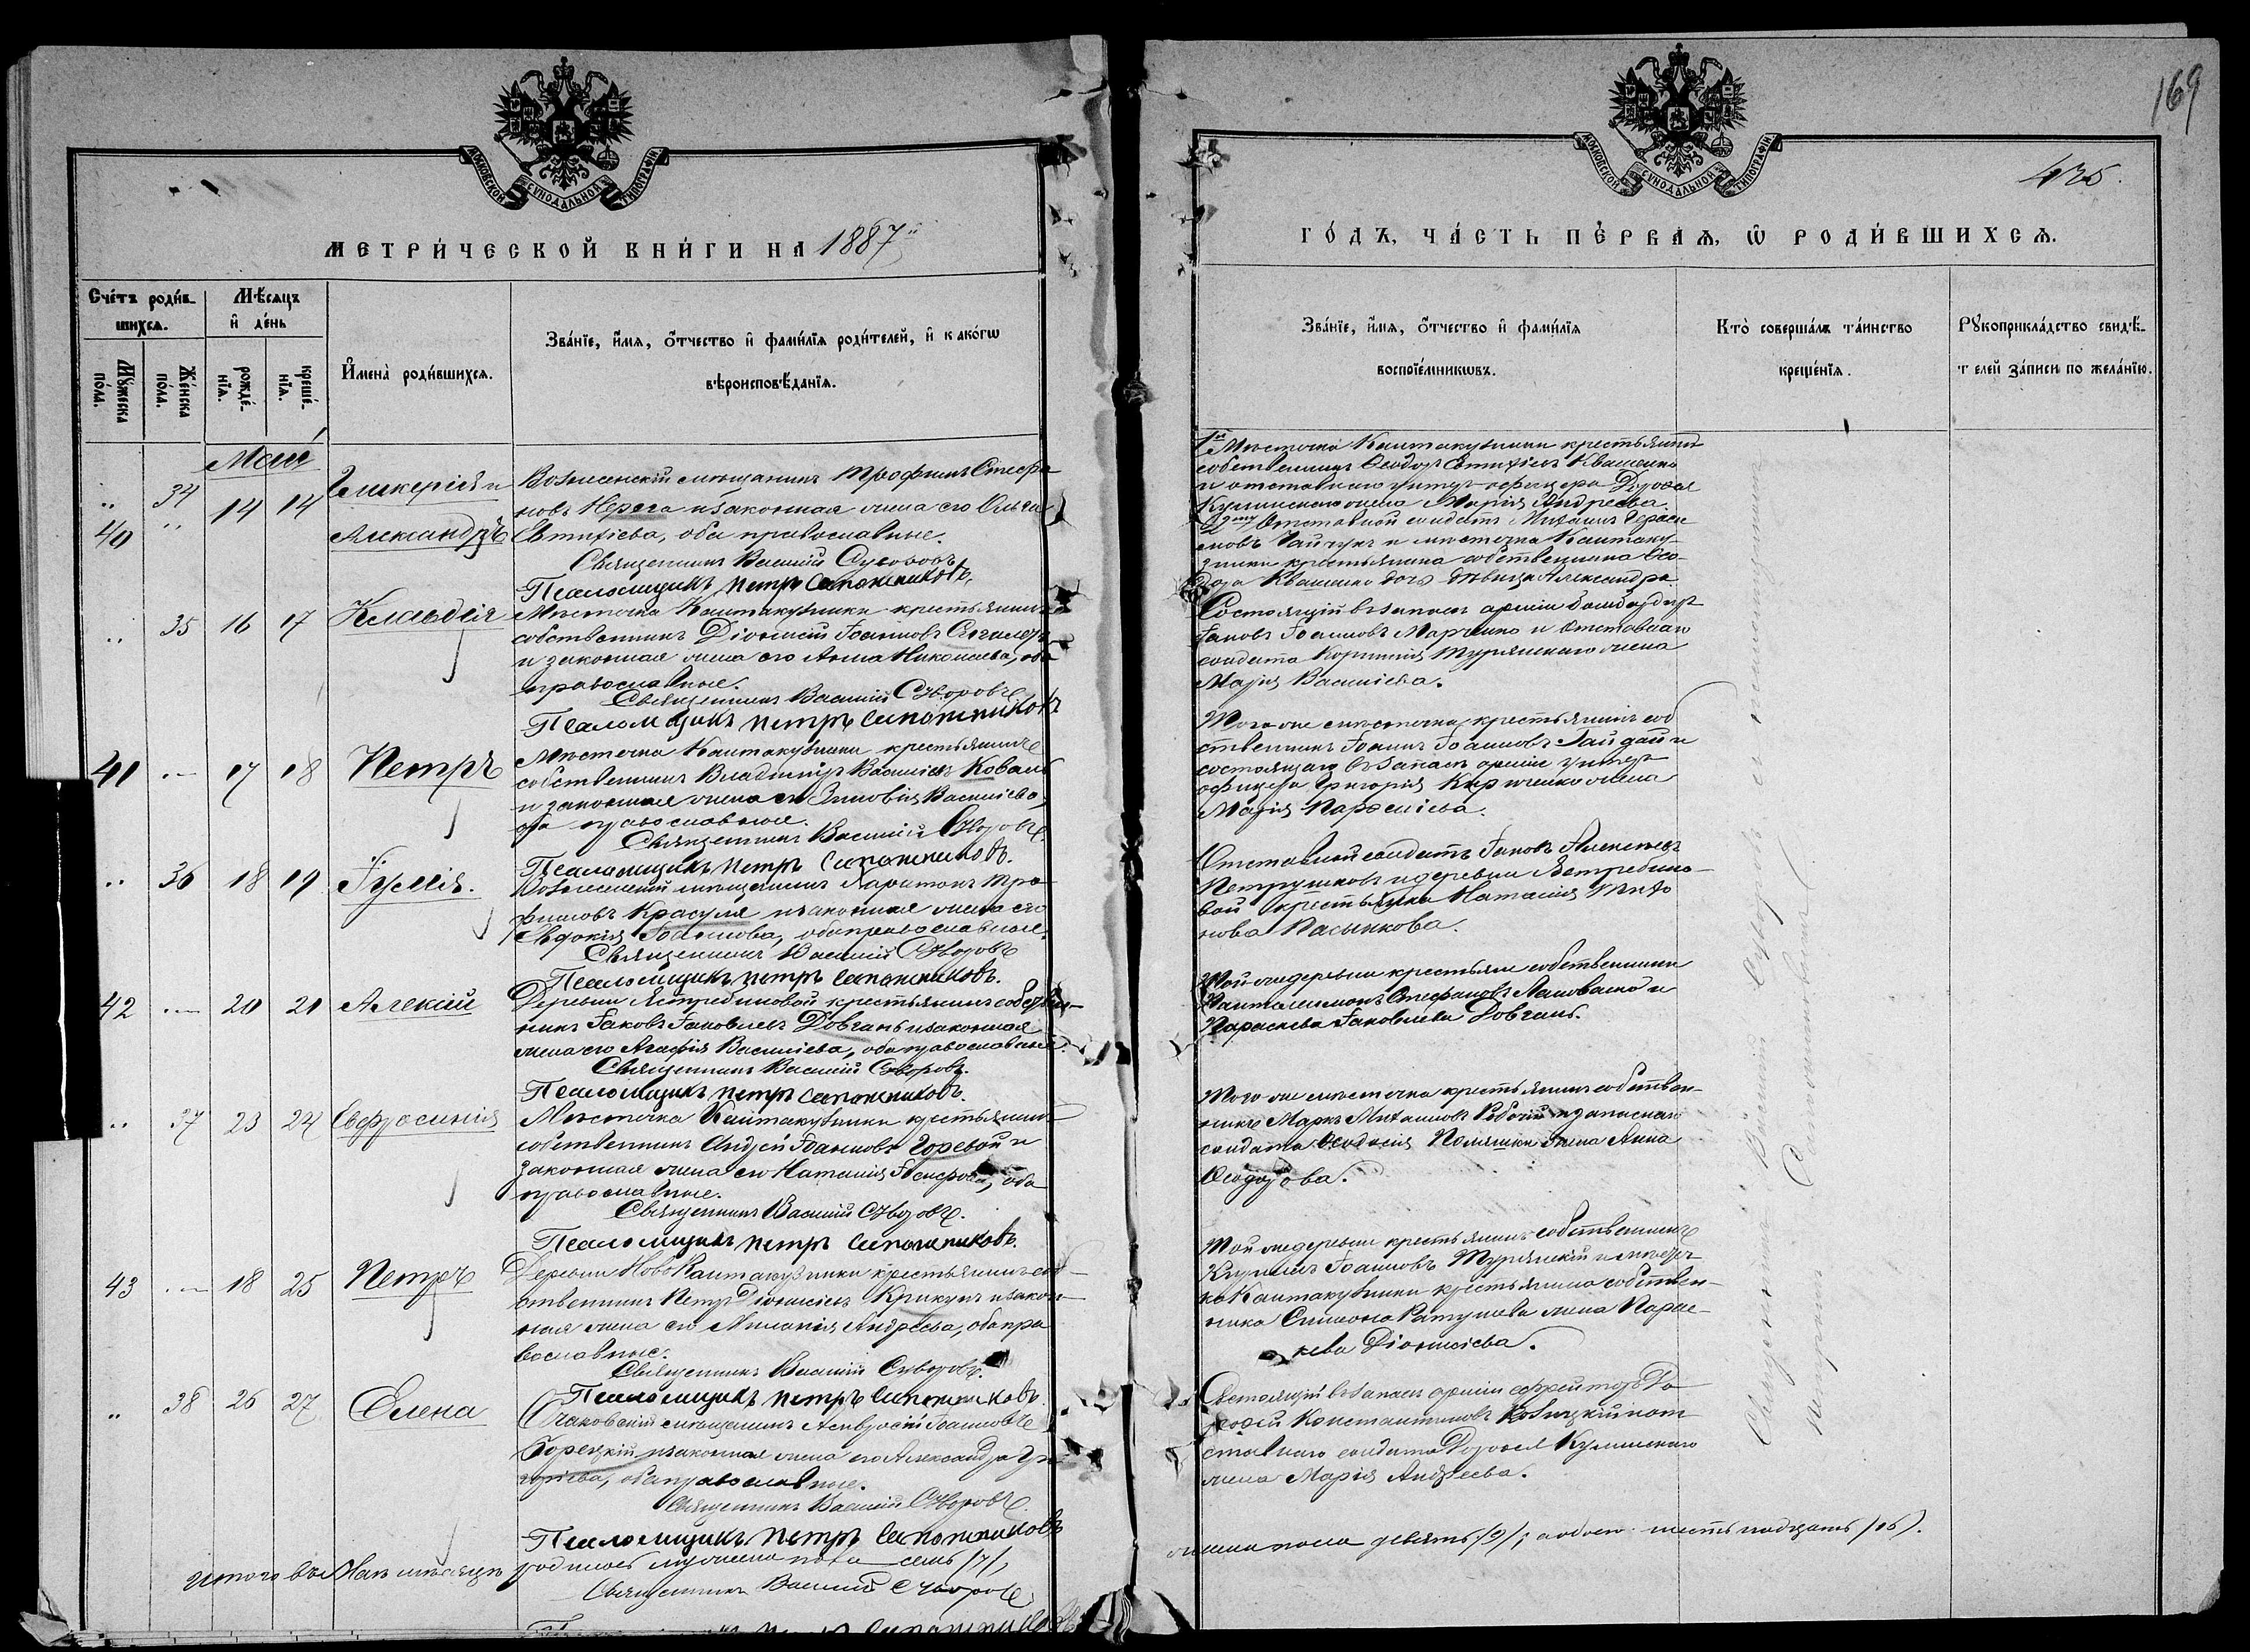 МОСКОВСКОЙ СУНОДАЛЬНОЙ ТИПОГРАФІИ
МЕТРИ́ЧЕСКОЙ КНИ́ГИ НА 1887й
Сче́тъ роди́в-
шихся.
Мѣ́сяцъ
и де́нь
Му́жеска
по́ла.
Же́нска
по́ла.
рожде́-
нїя.
креще́-
нїя.
Имена̀ роди́вшихся.
Зва́нїе, и́мя, о́тчество и фами́лїя роди́телей, и како́гѡ
вѣроисповѣ́данїя.
Май
„ 34 14 14 Гликерія и
40 „ Александръ
Вознесенскій мѣщанинъ Трофимъ Стефа
новъ Нерега и законная жена его Ольга
Евтихіева, оба православные.
Священникъ Василій Суворовъ
Псаломщикъ Петръ Сапожниковъ.
„ 35 16 17 Клавдія
Мѣстечка Кантакузинки крестьянинъ
собственникъ Діонисій Іоанновъ
и законная жена его Анна Николаева, оба
православные.
Священникъ Василій Суворовъ
Псаломщикъ Петръ Сапожниковъ
41 „ 17 18 Петръ
Мѣстечка Кантакузинки крестьянинъ
собственникъ Владиміръ Васильевъ Коваль
и законная жена его Зиновія Васильева,
оба православные.
Священникъ Василій Суворовъ.
Псаломщикъ Петръ Сапожниковъ.
„ 36 18 19 Іулія.
Вознесенскій мѣщанинъ Харитонъ Тро-
фимовъ Красуля и законная жена его
Евдокія Іоаннова, оба православные.
Священникъ Василій Суворовъ
Псаломщикъ Петръ Сапожниковъ.
42 „ 20 21 Алексій
Деревни Ястребиновой крестьянинъ собствен-
никъ Іаковъ Іаковлевъ Довгань и законная
жена его Агафія Васильева, оба православные.
Священникъ Василій Суворовъ.
Псаломщикъ Петръ Сапожниковъ.
„ 37 23 24 Евфросинія
Мѣстечка Кантакузинки крестьянинъ
собственникъ Андрей Іоанновъ Горевой и
законная жена его Наталія , оба
православные.
Священникъ Василій Суворовъ.
Псаломщикъ Петръ Сапожниковъ.
43 „ 18 25 Петръ
Деревни НовоКантакузинки крестьянинъ соб-
ственникъ Петръ Діонисіевъ Крикунъ и закон-
ная жена его Меланія Андреева, оба пра
вославные.
Священникъ Василій Суворовъ.
Псаломщикъ Петръ Сапожниковъ.
„ 38 26 27 Елена
Очаковскій мѣщанинъ Іоанновъ
Горецкій и законная жена его Александра Гри
горіева, оба православные.
Священникъ Василій Суворовъ
Псаломщикъ Петръ Сапожниковъ
Итого въ Маѣ мѣсяцѣ родилось мужеска пола семь /7/,
Священникъ Василій Суворовъ
169
МОСКОВСКОЙ СУНОДАЛЬНОЙ ТИПОГРАФІИ
425.
ГО́ДЪ, ЧА́СТЬ ПЕ́РВАЯ, Ѡ РОДИ́ВШИХСЯ.
Зва́нїе, и́мя, о́тчество и фами́лїя
воспрїе́мникѡвъ.
Кто̀ соверша́лъ та́инство
креще́нїя.
Рꙋкоприкла́дство свидѣ́-
телей за́писи по жела́нїю.
1й Мѣстечка Кантакузинки крестьянинъ
собственникъ Ѳеодоръ Евтихіевъ Квашенко
и отставнаго унтеръ-офицера Дороѳея
Кулинскаго жена Марія Андреева.
Отставной солдатъ Михаилъ Гераси
мовъ Чайчукъ и мѣстечка Кантаку-
зинки крестьянина собственника Ѳео-
дора Квашенко дочь дѣвица Александра.
Состоящій въ запасѣ арміи бомбардиръ
Іаковъ Іоанновъ Марченко и отставнаго
солдата Корнилія Турянскаго жена
Марія Васильева.
Того же мѣстечка крестьянинъ соб
ственникъ Іоаннъ Іоанновъ Гайдай и
состоящаго въ запасѣ арміи унтеръ
офицера Григорія Кириченко жена
Марія Парѳеніева.
Отставной солдатъ Іаковъ Алексѣевъ
Петрушковъ и деревни Ястребино-
вой крестьянка Наталія
нова Пасынкова.
Той же деревни крестьяне собственники
Пантелеимонъ Стефановъ и
Параскева Іаковлева Довгань.
Того же мѣстечка крестьянинъ собствен-
никъ Маркъ Михаиловъ Рабочій и запаснаго
солдата Ѳеодосія жена Анна
Ѳеодорова.
Той же деревни крестьянинъ собственникъ
Іоанновъ Турянскій и мѣстеч
ка Кантакузинки крестьянина собствен-
ника Симеона жена Парас-
кева Діонисіева.
Состоящій въ запасѣ арміи ефрейторъ До
роѳей Константиновъ и от
ставнаго солдата Дороѳея Кулинскаго
жена Марія Андреева.
Священникъ Василій Суворовъ съ псаломщикомъ
Петромъ Сапожниковымъ
женска пола девять /9/, а обоего шестнадцать /16/.